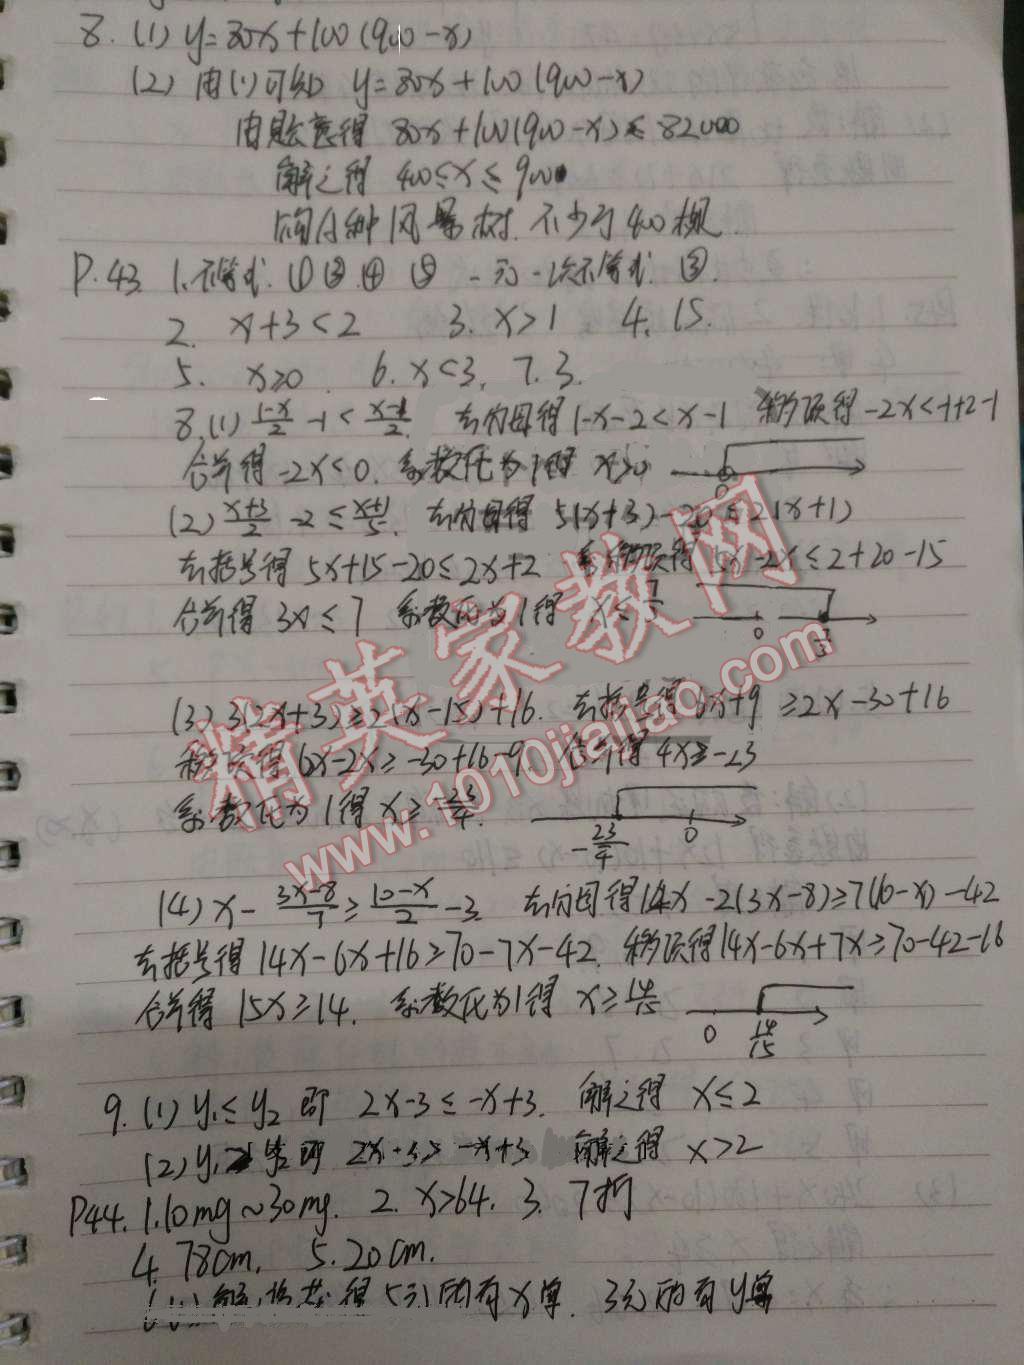 8. (1) y=80x+100(900-x)
(2) 由(1)可知 y=80x+100(900-x)
由题意得 80x+100(900-x)≤82000
解之得 400≤x≤900
购A种风景树 不少于400棵.
P.43. 1.不等式. ①②.④ ⑤ 一元一次不等式. ③.
2. x+3<2 3. x>1 4. 15.
5. x≥0. 6. x<3. 7. 3.
8.(1) (1-x)/2 -1 < (x-1)/2. 去分母得 1-x-2<x-1 移项得 -2x<-1+2-1
合并得 -2x<0. 系数化为1得 x>0 0
(2) (x+3)/2 -2 ≤ (x+1)/5. 去分母得 5(x+3)-20≤2(x+1)
去括号得 5x+15-20≤2x+2 移项得 5x-2x≤2+20-15
合并得 3x≤7 系数化为1得 x≤7/3 0 7/3
(3) 3(2x+3)≥2(x-15)+16. 去括号得 6x+9 ≥2x-30+16
移项得 6x-2x≥-30+16-9 合并得 4x≥-23
系数化为1得 x≥-23/4. -23/4 0
(4) x- (3x-8)/7 ≥ (10-x)/2 -3. 去分母得 14x-2(3x-8)≥7(10-x)-42
去括号得 14x-6x+16≥70-7x-42. 移项得 14x-6x+7x≥70-42-16
合并得 15x≥14. 系数化为1得 x≥14/15 0 14/15
9. (1) y₁≤y₂ 即 2x-3≤-x+3. 解之得 x≤2
(2) y₁>y₂ 即 2x-3>-x+3 解之得 x>2
P44. 1. 10mg~30mg. 2. x>64. 3. 7折
4. 78cm. 5. 20cm.
5元的有x 3元的有y
精英家教网
www.1010jiajiao.com